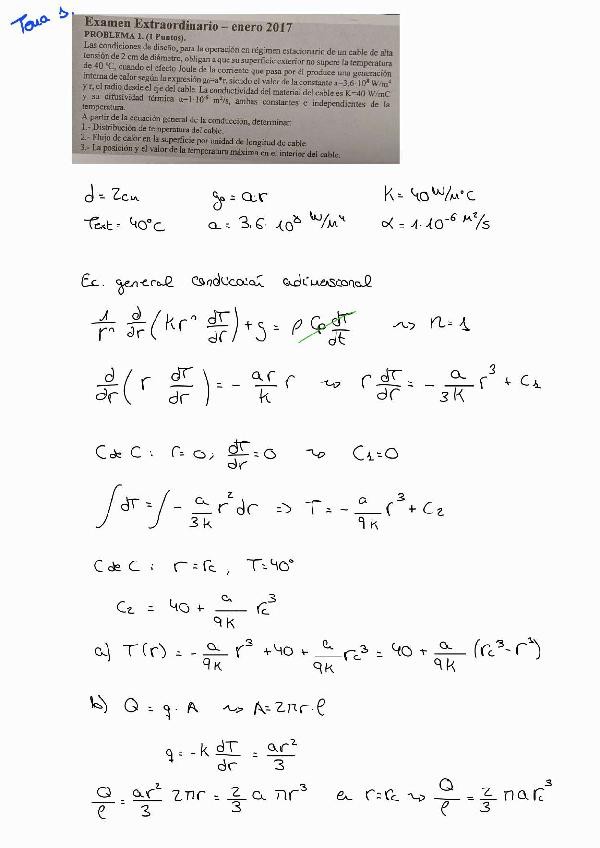 Tema 3.
Examen Extraordinario – enero 2017
PROBLEMA 1. (1 Puntos).
Las condiciones de diseño, para la operación en régimen estacionario de un cable de alta
tensión de 2 cm de diámetro, obligan a que su superficie exterior no supere la temperatura
de 40 ºC, cuando el efecto Joule de la corriente que pasa por él produce una generación
interna de calor según la expresión g₀=a*r, siendo el valor de la constante a=3,6·10⁸ W/m⁴
y r, el radio desde el eje del cable. La conductividad del material del cable es K=40 W/mC
y su difusividad térmica α=1·10⁻⁶ m²/s, ambas constantes e independientes de la
temperatura.
A partir de la ecuación general de la conducción, determinar:
1.- Distribución de temperatura del cable.
2.- Flujo de calor en la superficie por unidad de longitud de cable
3.- La posición y el valor de la temperatura máxima en el interior del cable.
d = 2cm g₀ = ar K = 40 W/mºC
Text = 40ºC a = 3,6·10⁸ W/m⁴ α = 1·10⁻⁶ m²/s
Ec. general conducción adimensional
1/rⁿ d/dr (k rⁿ dT/dr) + g = ρ Cp dT/dt ⇝ n = 1
d/dr (r dT/dr) = - ar/k r ⇝ r dT/dr = - a/3K r³ + C₁
C de C : r = 0, dT/dr = 0 ⇝ C₁ = 0
∫ dT = ∫ - a/3k r² dr => T = - a/9k r³ + C₂
C de C : r = rc , T = 40º
C₂ = 40 + a/9K rc³
a) T(r) = - a/9K r³ + 40 + a/9K rc³ = 40 + a/9K (rc³ - r³)
b) Q = q · A ⇝ A = 2πr·l
q = -k dT/dr = ar²/3
Q/l = ar²/3 2πr = 2/3 a πr³ en r = rc ⇝ Q/l = 2/3 π a rc³